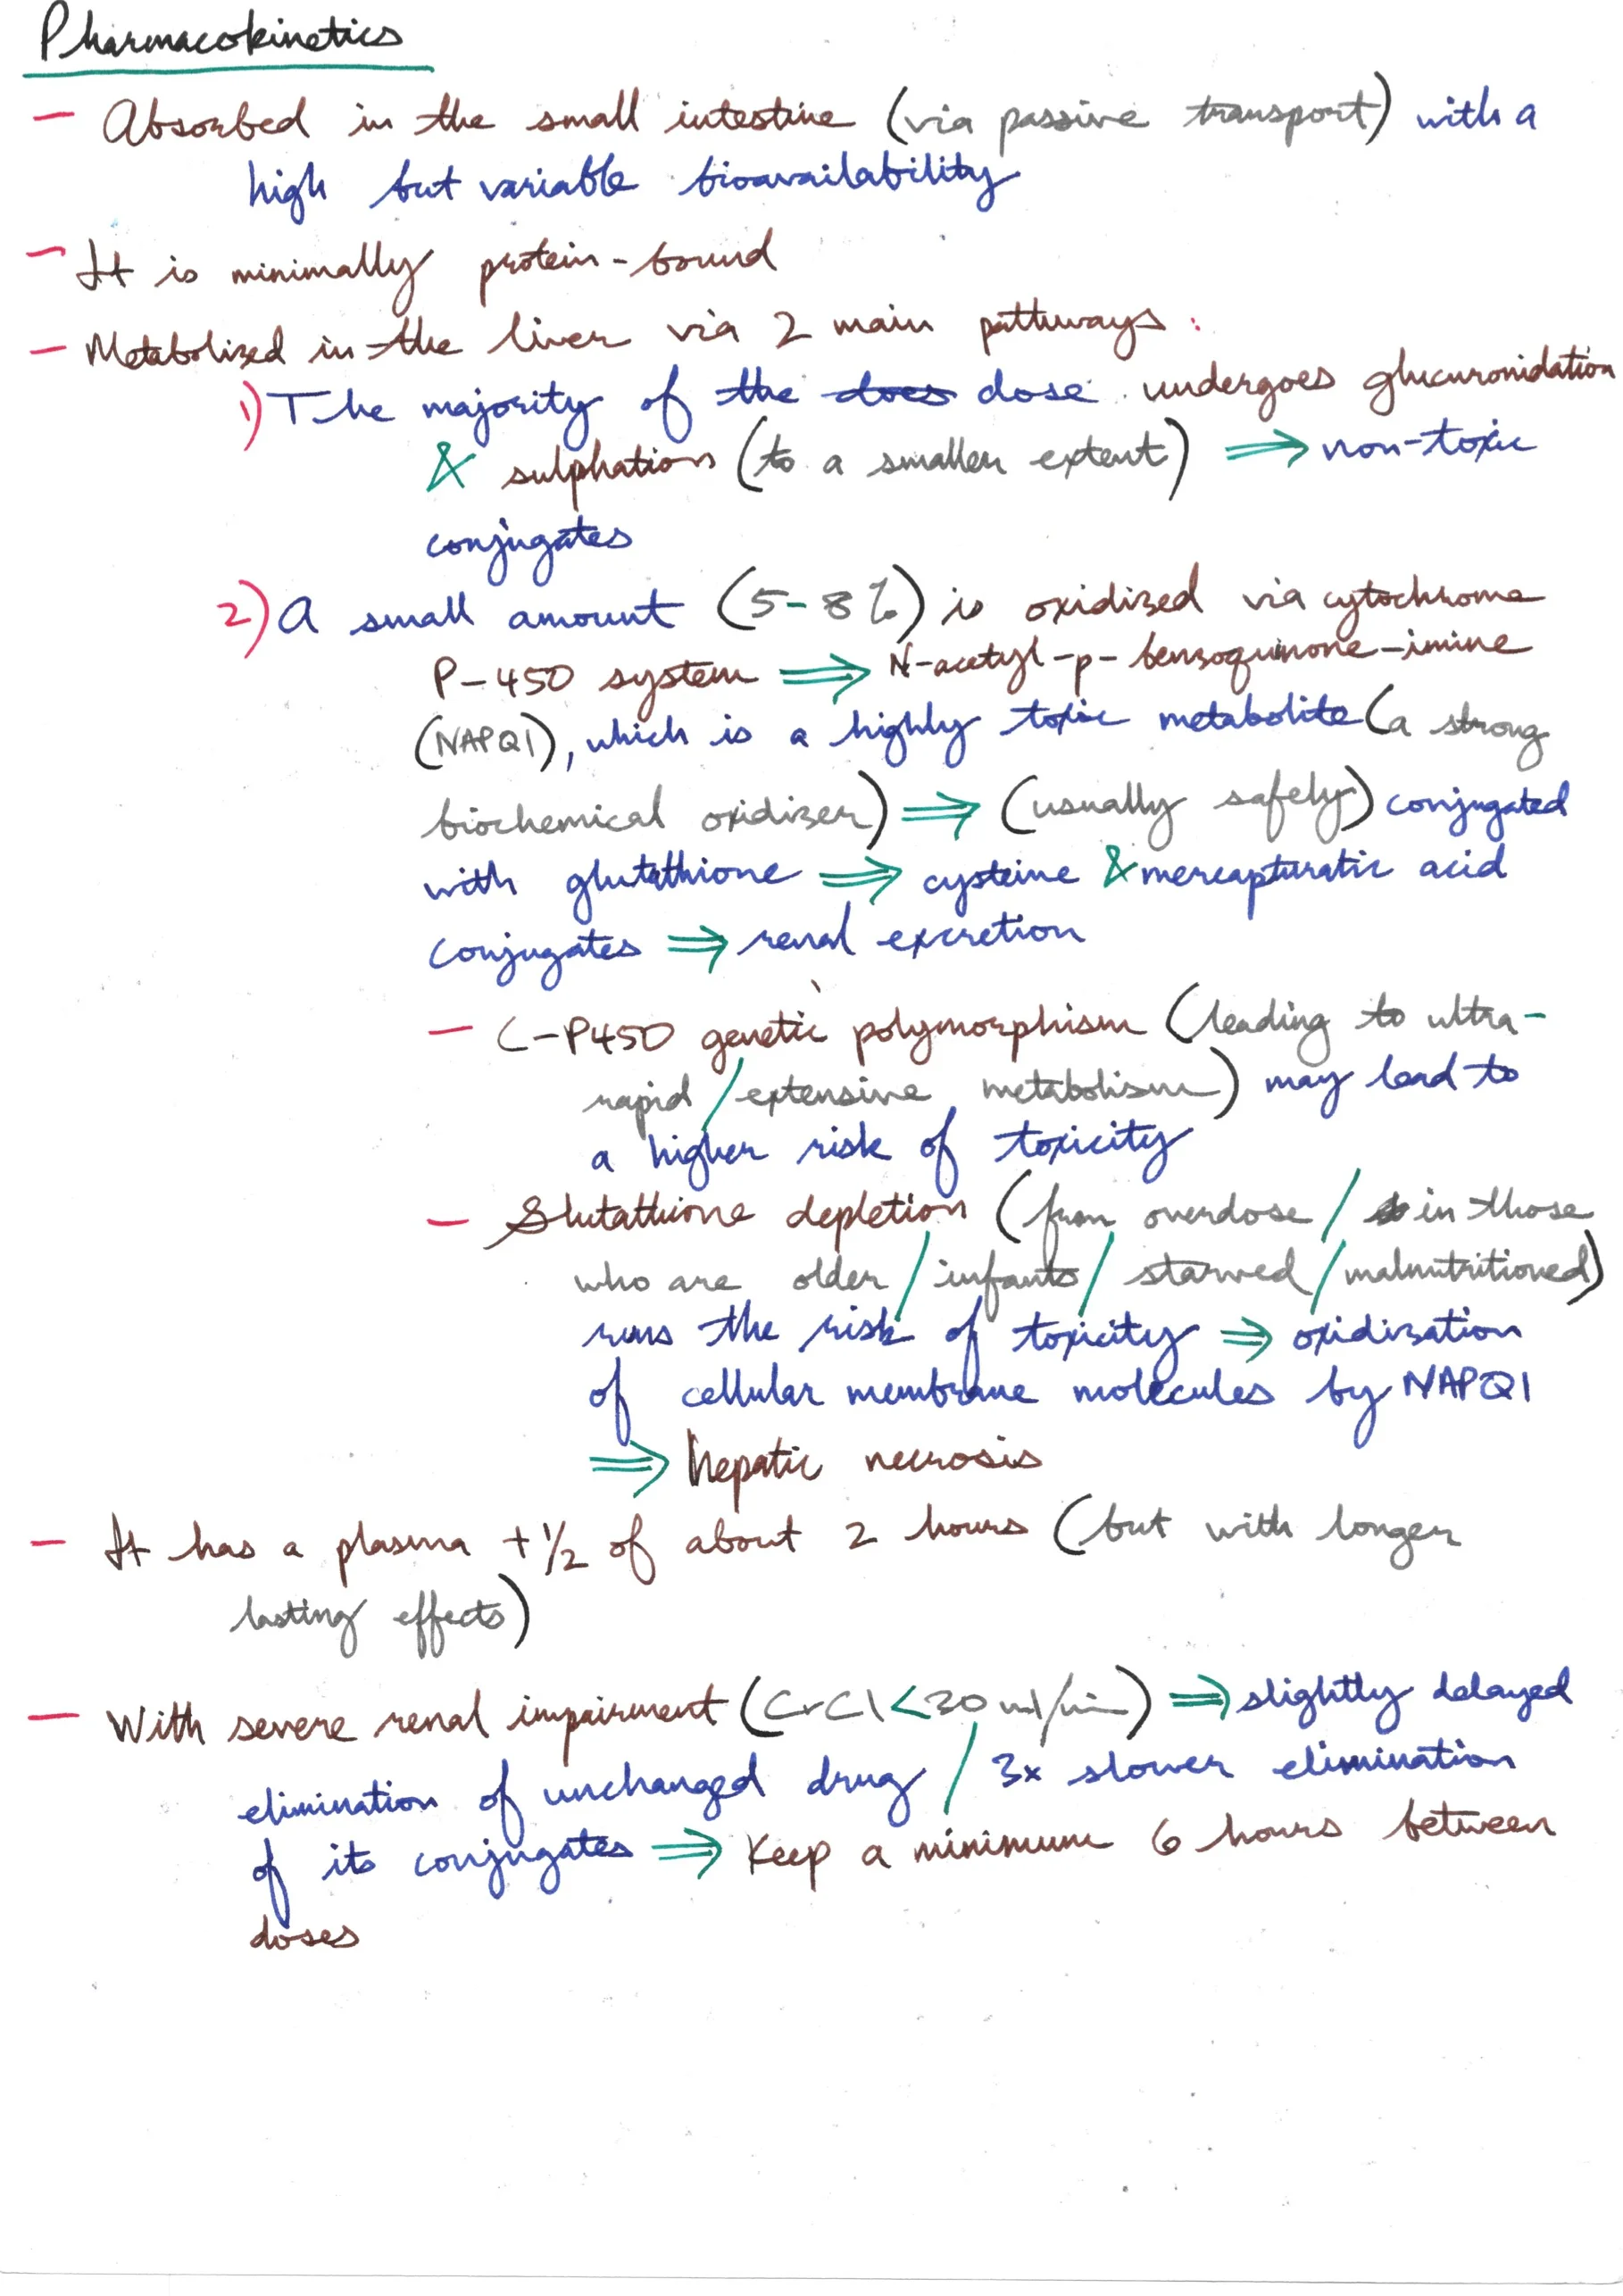 Pharmacokinetics
- Absorbed in the small intestine (via passive transport) with a
high but variable bioavailability
- It is minimally protein-bound
- Metabolized in the liver via 2 main pathways:
1) The majority of the does dose undergoes glucuronidation
& sulphation (to a smaller extent) ⇒ non-toxic
conjugates
2) A small amount (5-8%) is oxidized via cytochrome
P-450 system ⇒ N-acetyl-p-benzoquinone-imine
(NAPQI), which is a highly toxic metabolite (a strong
biochemical oxidizer) ⇒ (usually safely) conjugated
with glutathione ⇒ cysteine & mercapturatic acid
conjugates ⇒ renal excretion
- C-P450 genetic polymorphism (leading to ultra-
rapid / extensive metabolism) may lead to
a higher risk of toxicity
- Glutathione depletion (from overdose / in those
who are older / infants / starved / malnutritioned)
runs the risk of toxicity ⇒ oxidization
of cellular membrane molecules by NAPQI
⇒ hepatic necrosis
- It has a plasma t½ of about 2 hours (but with longer
lasting effects)
- With severe renal impairment (CrCl < 30 ml/min) ⇒ slightly delayed
elimination of unchanged drug / 3x slower elimination
of its conjugates ⇒ Keep a minimum 6 hours between
doses